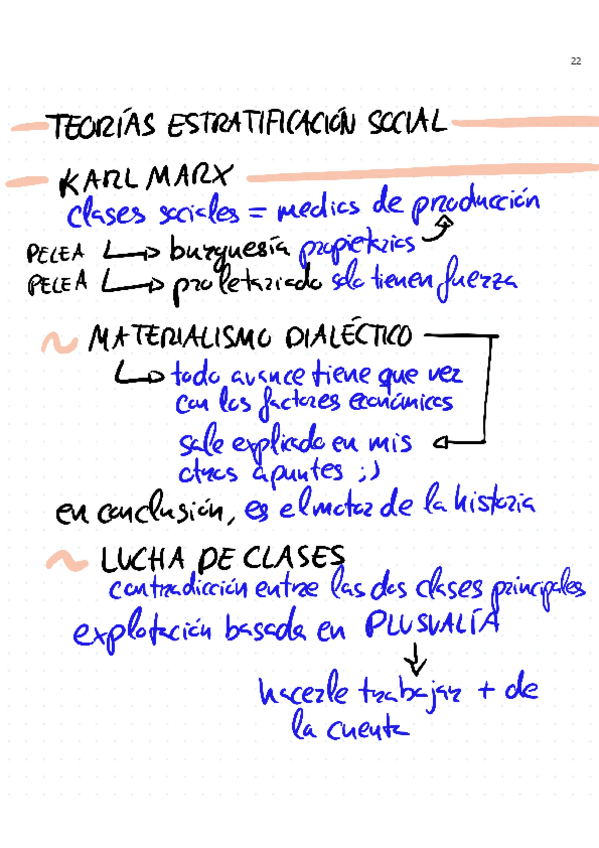 22
TEORÍAS ESTRATIFICACIÓN SOCIAL
KARL MARX
clases sociales = medios de producción
PELEA burguesía propietarios
PELEA proletariado solo tienen fuerza
MATERIALISMO DIALÉCTICO
todo avance tiene que ver
con los factores económicos
sale explicado en mis
otros apuntes ;)
en conclusión, es el motor de la historia
LUCHA DE CLASES
contradicción entre las dos clases principales
explotación basada en PLUSVALÍA
hacerle trabajar + de
la cuenta